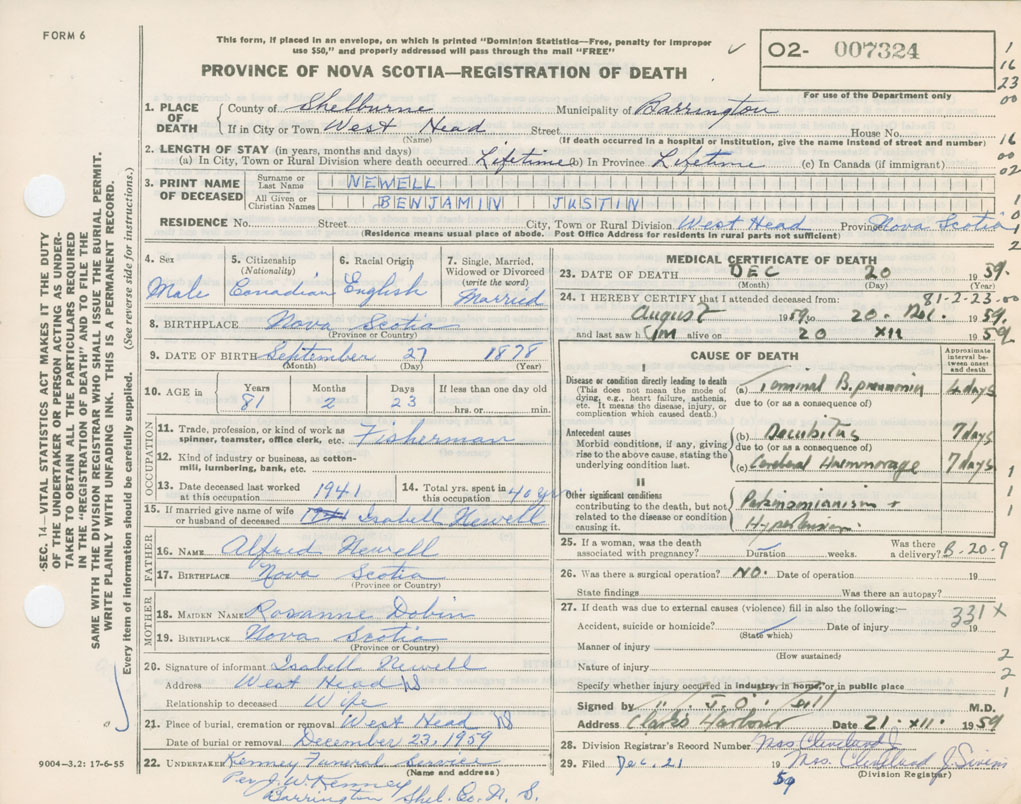 FORM 6
This form, if placed in an envelope, on which is printed "Dominion Statistics—Free, penalty for improper
use $50," and properly addressed will pass through the mail "FREE"
O2- 007324
PROVINCE OF NOVA SCOTIA—REGISTRATION OF DEATH
For use of the Department only
1
16
23
00
1. PLACE OF DEATH
County of Shelburne Municipality of Barrington
If in City or Town West Head Street House No.
(Name) (If death occurred in a hospital or institution, give the name instead of street and number)
16
00
02
2. LENGTH OF STAY (in years, months and days)
(a) In City, Town or Rural Division where death occurred Lifetime (b) In Province Lifetime (c) In Canada (if immigrant)
3. PRINT NAME OF DECEASED
Surname or Last Name NEWELL
All Given or Christian Names BENJAMIN JUSTIN
RESIDENCE No. Street City, Town or Rural Division West Head Province Nova Scotia
(Residence means usual place of abode. Post Office Address for residents in rural parts not sufficient)
4. Sex
Male
5. Citizenship
(Nationality)
Canadian
6. Racial Origin
English
7. Single, Married,
Widowed or Divorced
(write the word)
Married
8. BIRTHPLACE Nova Scotia
(Province or Country)
9. DATE OF BIRTH September 27 1878
(Month) (Day) (Year)
10. AGE in
Years Months Days If less than one day old
81 2 23 hrs. or min.
OCCUPATION
11. Trade, profession, or kind of work as
spinner, teamster, office clerk, etc. Fisherman
12. Kind of industry or business, as cotton-
mill, lumbering, bank, etc.
13. Date deceased last worked
at this occupation 1941
14. Total yrs. spent in
this occupation 40 yrs
15. If married give name of wife
or husband of deceased 1941 Isabell Newell
FATHER
16. NAME Alfred Newell
17. BIRTHPLACE Nova Scotia
(Province or Country)
MOTHER
18. MAIDEN NAME Rosanne
19. BIRTHPLACE Nova Scotia
(Province or Country)
20. Signature of informant Isabell Newell
Address West Head NS
Relationship to deceased Wife
21. Place of burial, cremation or removal West Head NS
Date of burial or removal December 23, 1959
22. UNDERTAKER Kenney Funeral Service
(Name and address)
Per J. W. Kenney
Barrington Shel. Co. N. S.
9004—3.2: 17-6-55
MEDICAL CERTIFICATE OF DEATH
23. DATE OF DEATH DEC 20 1959.
(Month) (Day) (Year)
81-2-23-00
24. I HEREBY CERTIFY that I attended deceased from:
August 1959 to 20. Dec. 1959.
and last saw him alive on 20 XII 1959
CAUSE OF DEATH
Approximate
interval between
onset
and death
I
Disease or condition directly leading to death
(This does not mean the mode of
dying, e.g., heart failure, asthenia,
etc. It means the disease, injury, or
complication which caused death.)
(a) Terminal B. pneumonia 4 days
due to (or as a consequence of)
Antecedent causes
Morbid conditions, if any, giving
rise to the above cause, stating the
underlying condition last.
(b) Decubitus 7 days
due to (or as a consequence of)
(c) Cerebral Haemmorage 7 days
II
Other significant conditions
contributing to the death, but not
related to the disease or condition
causing it.
Parkinsonianism +
Hypertension.
25. If a woman, was the death
associated with pregnancy? Duration weeks.
Was there
a delivery? B-20-9
26. Was there a surgical operation? NO. Date of operation 19
State findings Was there an autopsy?
27. If death was due to external causes (violence) fill in also the following:—
331X
Accident, suicide or homicide? Date of injury 19
(State which)
Manner of injury
(How sustained)
Nature of injury
Specify whether injury occurred in industry, in home, or in public place
Signed by M.D.
Address Clark's Harbour Date 21. XII. 1959
28. Division Registrar's Record Number Mrs Cleveland J
29. Filed Dec. 21 1959 Mrs. Cleveland J.
(Division Registrar)
SEC. 14—VITAL STATISTICS ACT MAKES IT THE DUTY
OF THE UNDERTAKER OR PERSON ACTING AS UNDER-
TAKER TO OBTAIN ALL THE PARTICULARS REQUIRED
IN THE "REGISTRATION OF DEATH" AND TO FILE THE
SAME WITH THE DIVISION REGISTRAR WHO SHALL ISSUE THE BURIAL PERMIT.
WRITE PLAINLY WITH UNFADING INK. THIS IS A PERMANENT RECORD.
Every item of information should be carefully supplied. (See reverse side for instructions.)